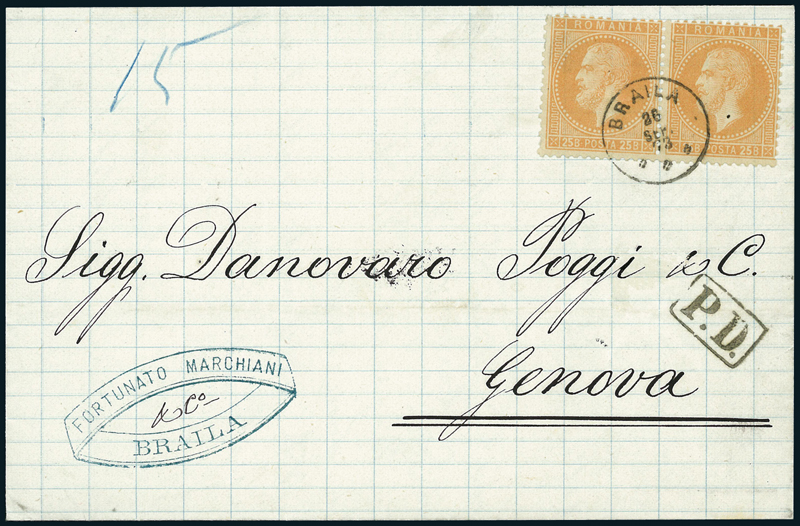 15
ROMANIA ROMANIA
25 B POSTA 25 B POSTA 25 B
BRAILA
26
SEP.
Sigg. Danovaro Poggi & C.
P.D.
Genova
FORTUNATO MARCHIANI
& Co
BRAILA